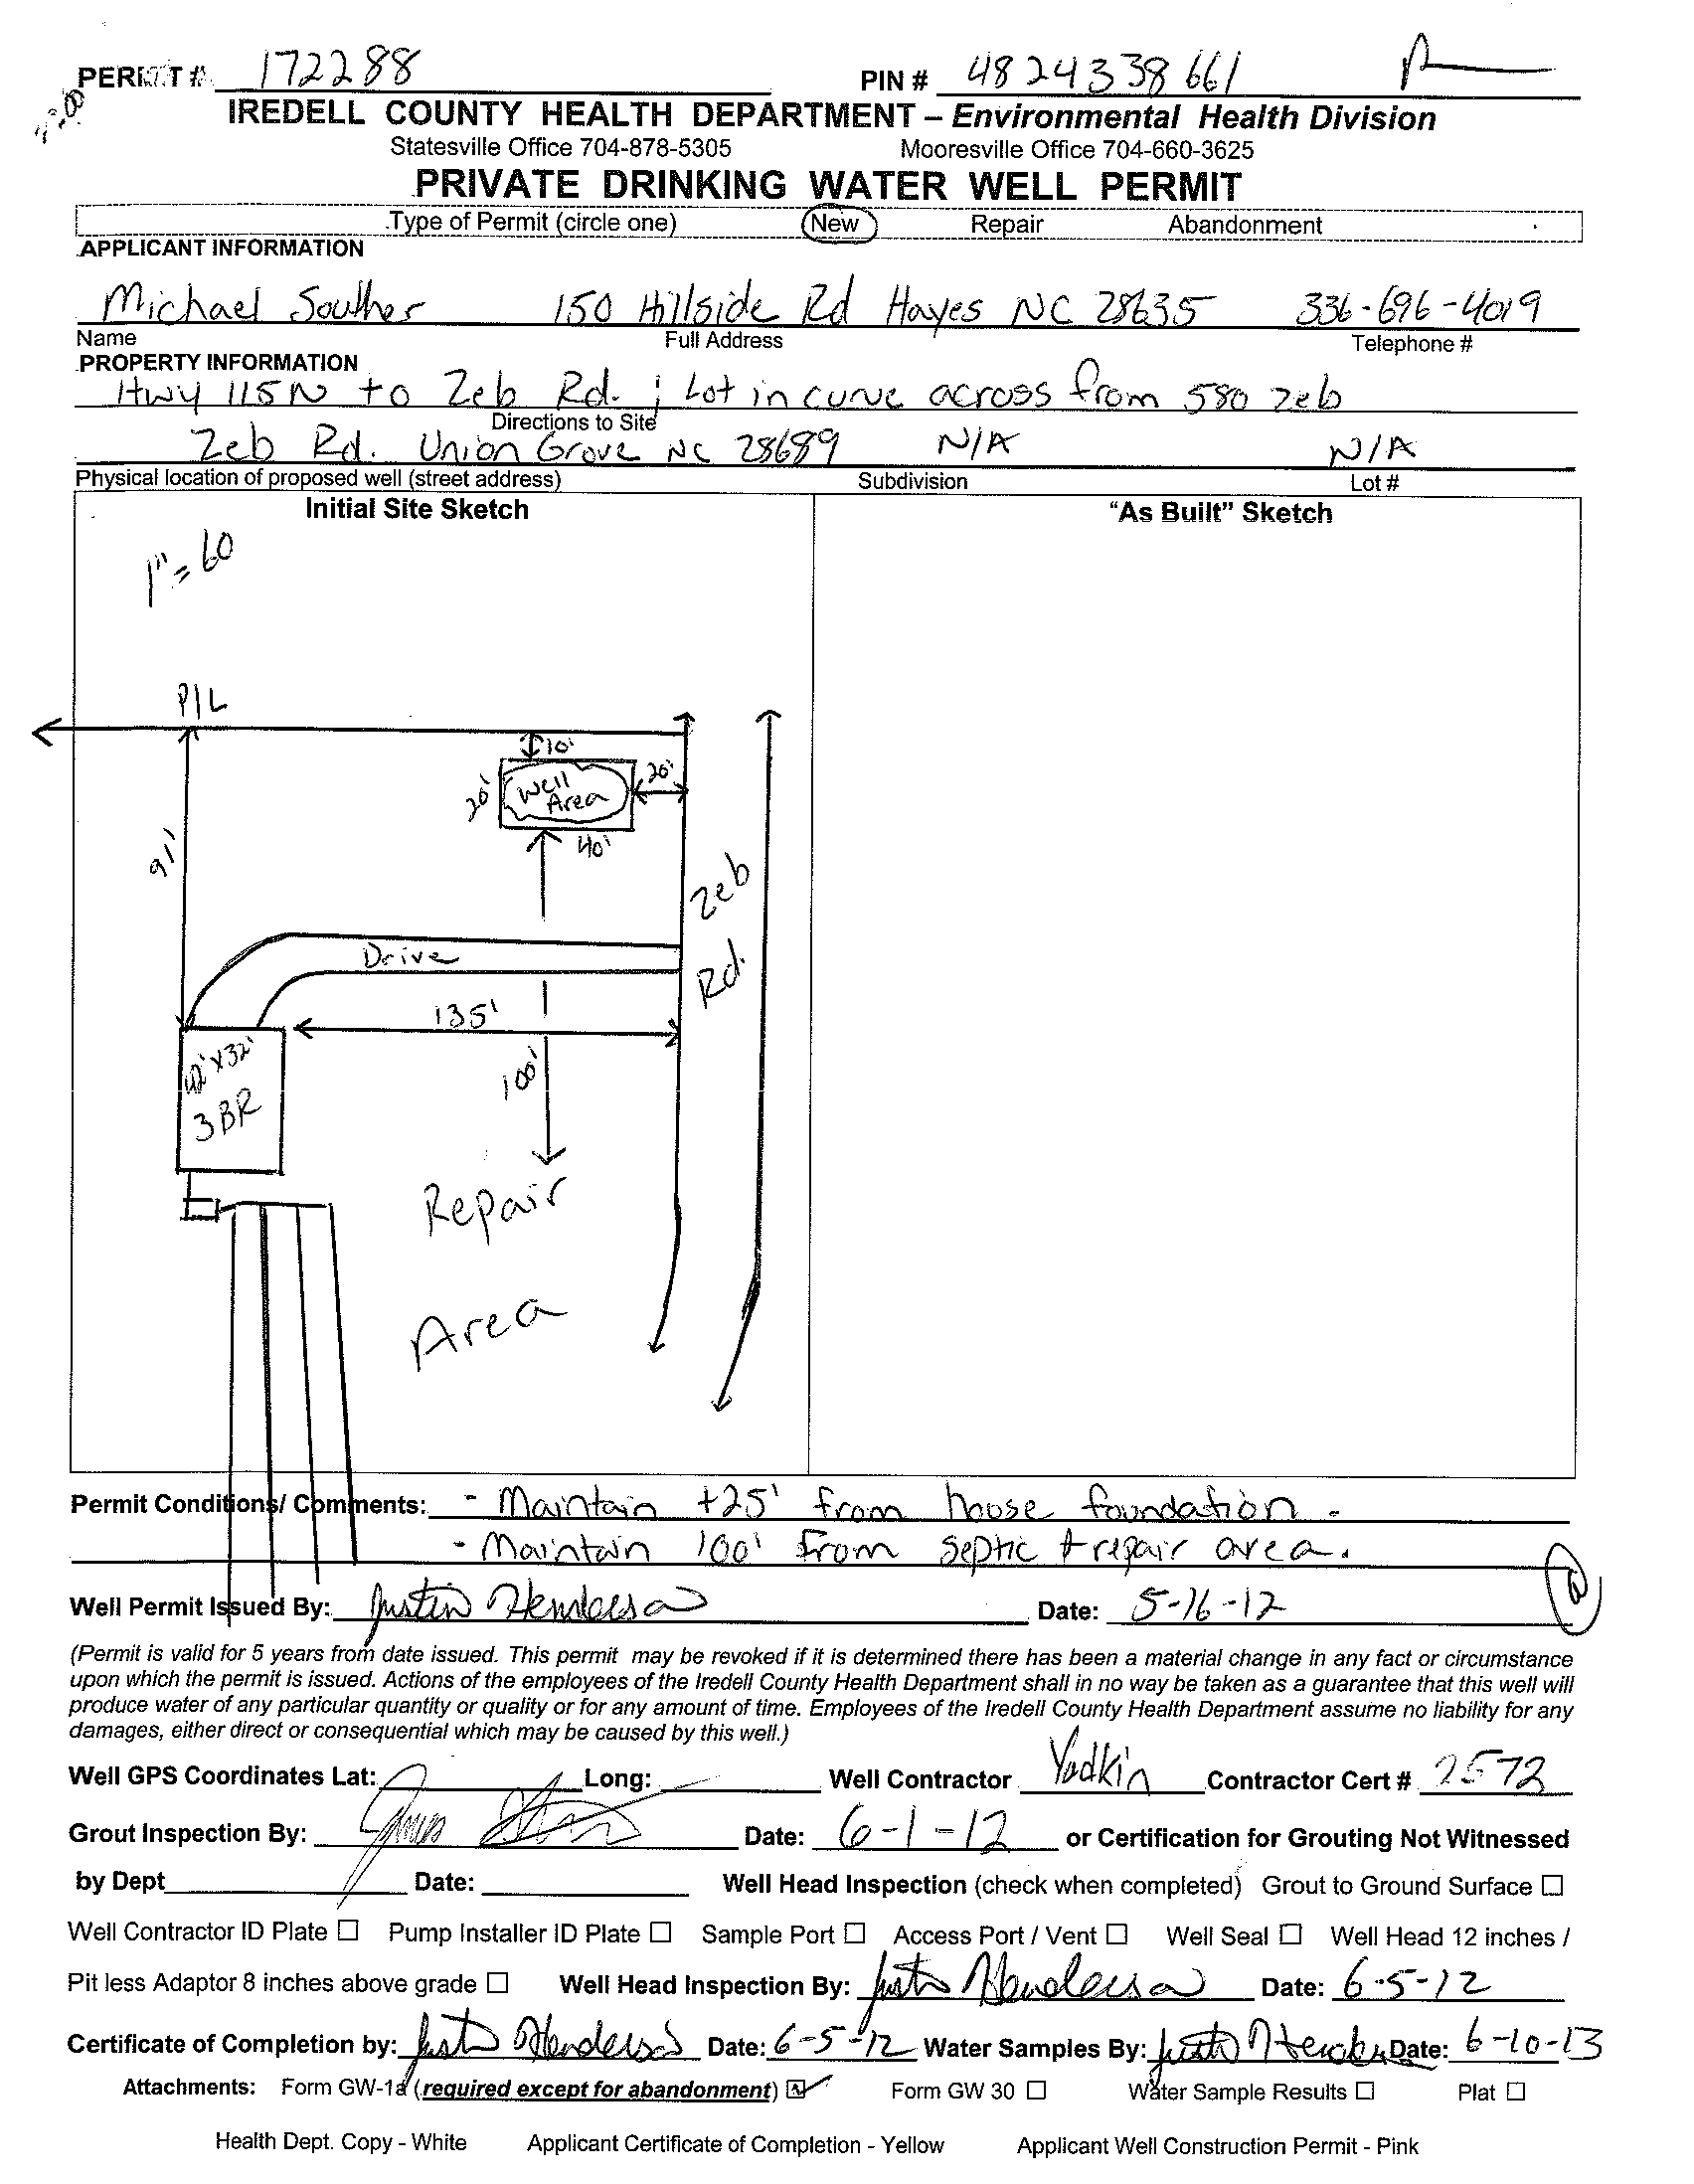 PERMIT # 172288 PIN # 4824338661
IREDELL COUNTY HEALTH DEPARTMENT – Environmental Health Division
Statesville Office 704-878-5305 Mooresville Office 704-660-3625
PRIVATE DRINKING WATER WELL PERMIT
Type of Permit (circle one) New Repair Abandonment
APPLICANT INFORMATION
Michael Souther 150 Hillside Rd Hayes NC 28635 336-696-4019
Name Full Address Telephone #
PROPERTY INFORMATION
Hwy 115N to Zeb Rd. ; Lot in curve across from 580 Zeb
Directions to Site
Zeb Rd. Union Grove NC 28689 N/A N/A
Physical location of proposed well (street address) Subdivision Lot #
Initial Site Sketch "As Built" Sketch
1" = 60
P/L
10'
20' Well Area 20'
40'
91'
Zeb Rd.
Drive
135'
42'x32'
3BR
100'
Repair
Area
Permit Conditions/ Comments: - Maintain +25' from house foundation.
- Maintain 100' from septic + repair area.
Well Permit Issued By: Justin Henderson Date: 5-16-12
(Permit is valid for 5 years from date issued. This permit may be revoked if it is determined there has been a material change in any fact or circumstance
upon which the permit is issued. Actions of the employees of the Iredell County Health Department shall in no way be taken as a guarantee that this well will
produce water of any particular quantity or quality or for any amount of time. Employees of the Iredell County Health Department assume no liability for any
damages, either direct or consequential which may be caused by this well.)
Well GPS Coordinates Lat: Long: Well Contractor Yadkin Contractor Cert # 2572
Grout Inspection By: Date: 6-1-12 or Certification for Grouting Not Witnessed
by Dept Date: Well Head Inspection (check when completed) Grout to Ground Surface ☐
Well Contractor ID Plate ☐ Pump Installer ID Plate ☐ Sample Port ☐ Access Port / Vent ☐ Well Seal ☐ Well Head 12 inches /
Pit less Adaptor 8 inches above grade ☐ Well Head Inspection By: Justin Henderson Date: 6-5-12
Certificate of Completion by: Justin Henderson Date: 6-5-12 Water Samples By: Justin Henderson Date: 6-10-13
Attachments: Form GW-1a (required except for abandonment) ☑ Form GW 30 ☐ Water Sample Results ☐ Plat ☐
Health Dept. Copy - White Applicant Certificate of Completion - Yellow Applicant Well Construction Permit - Pink